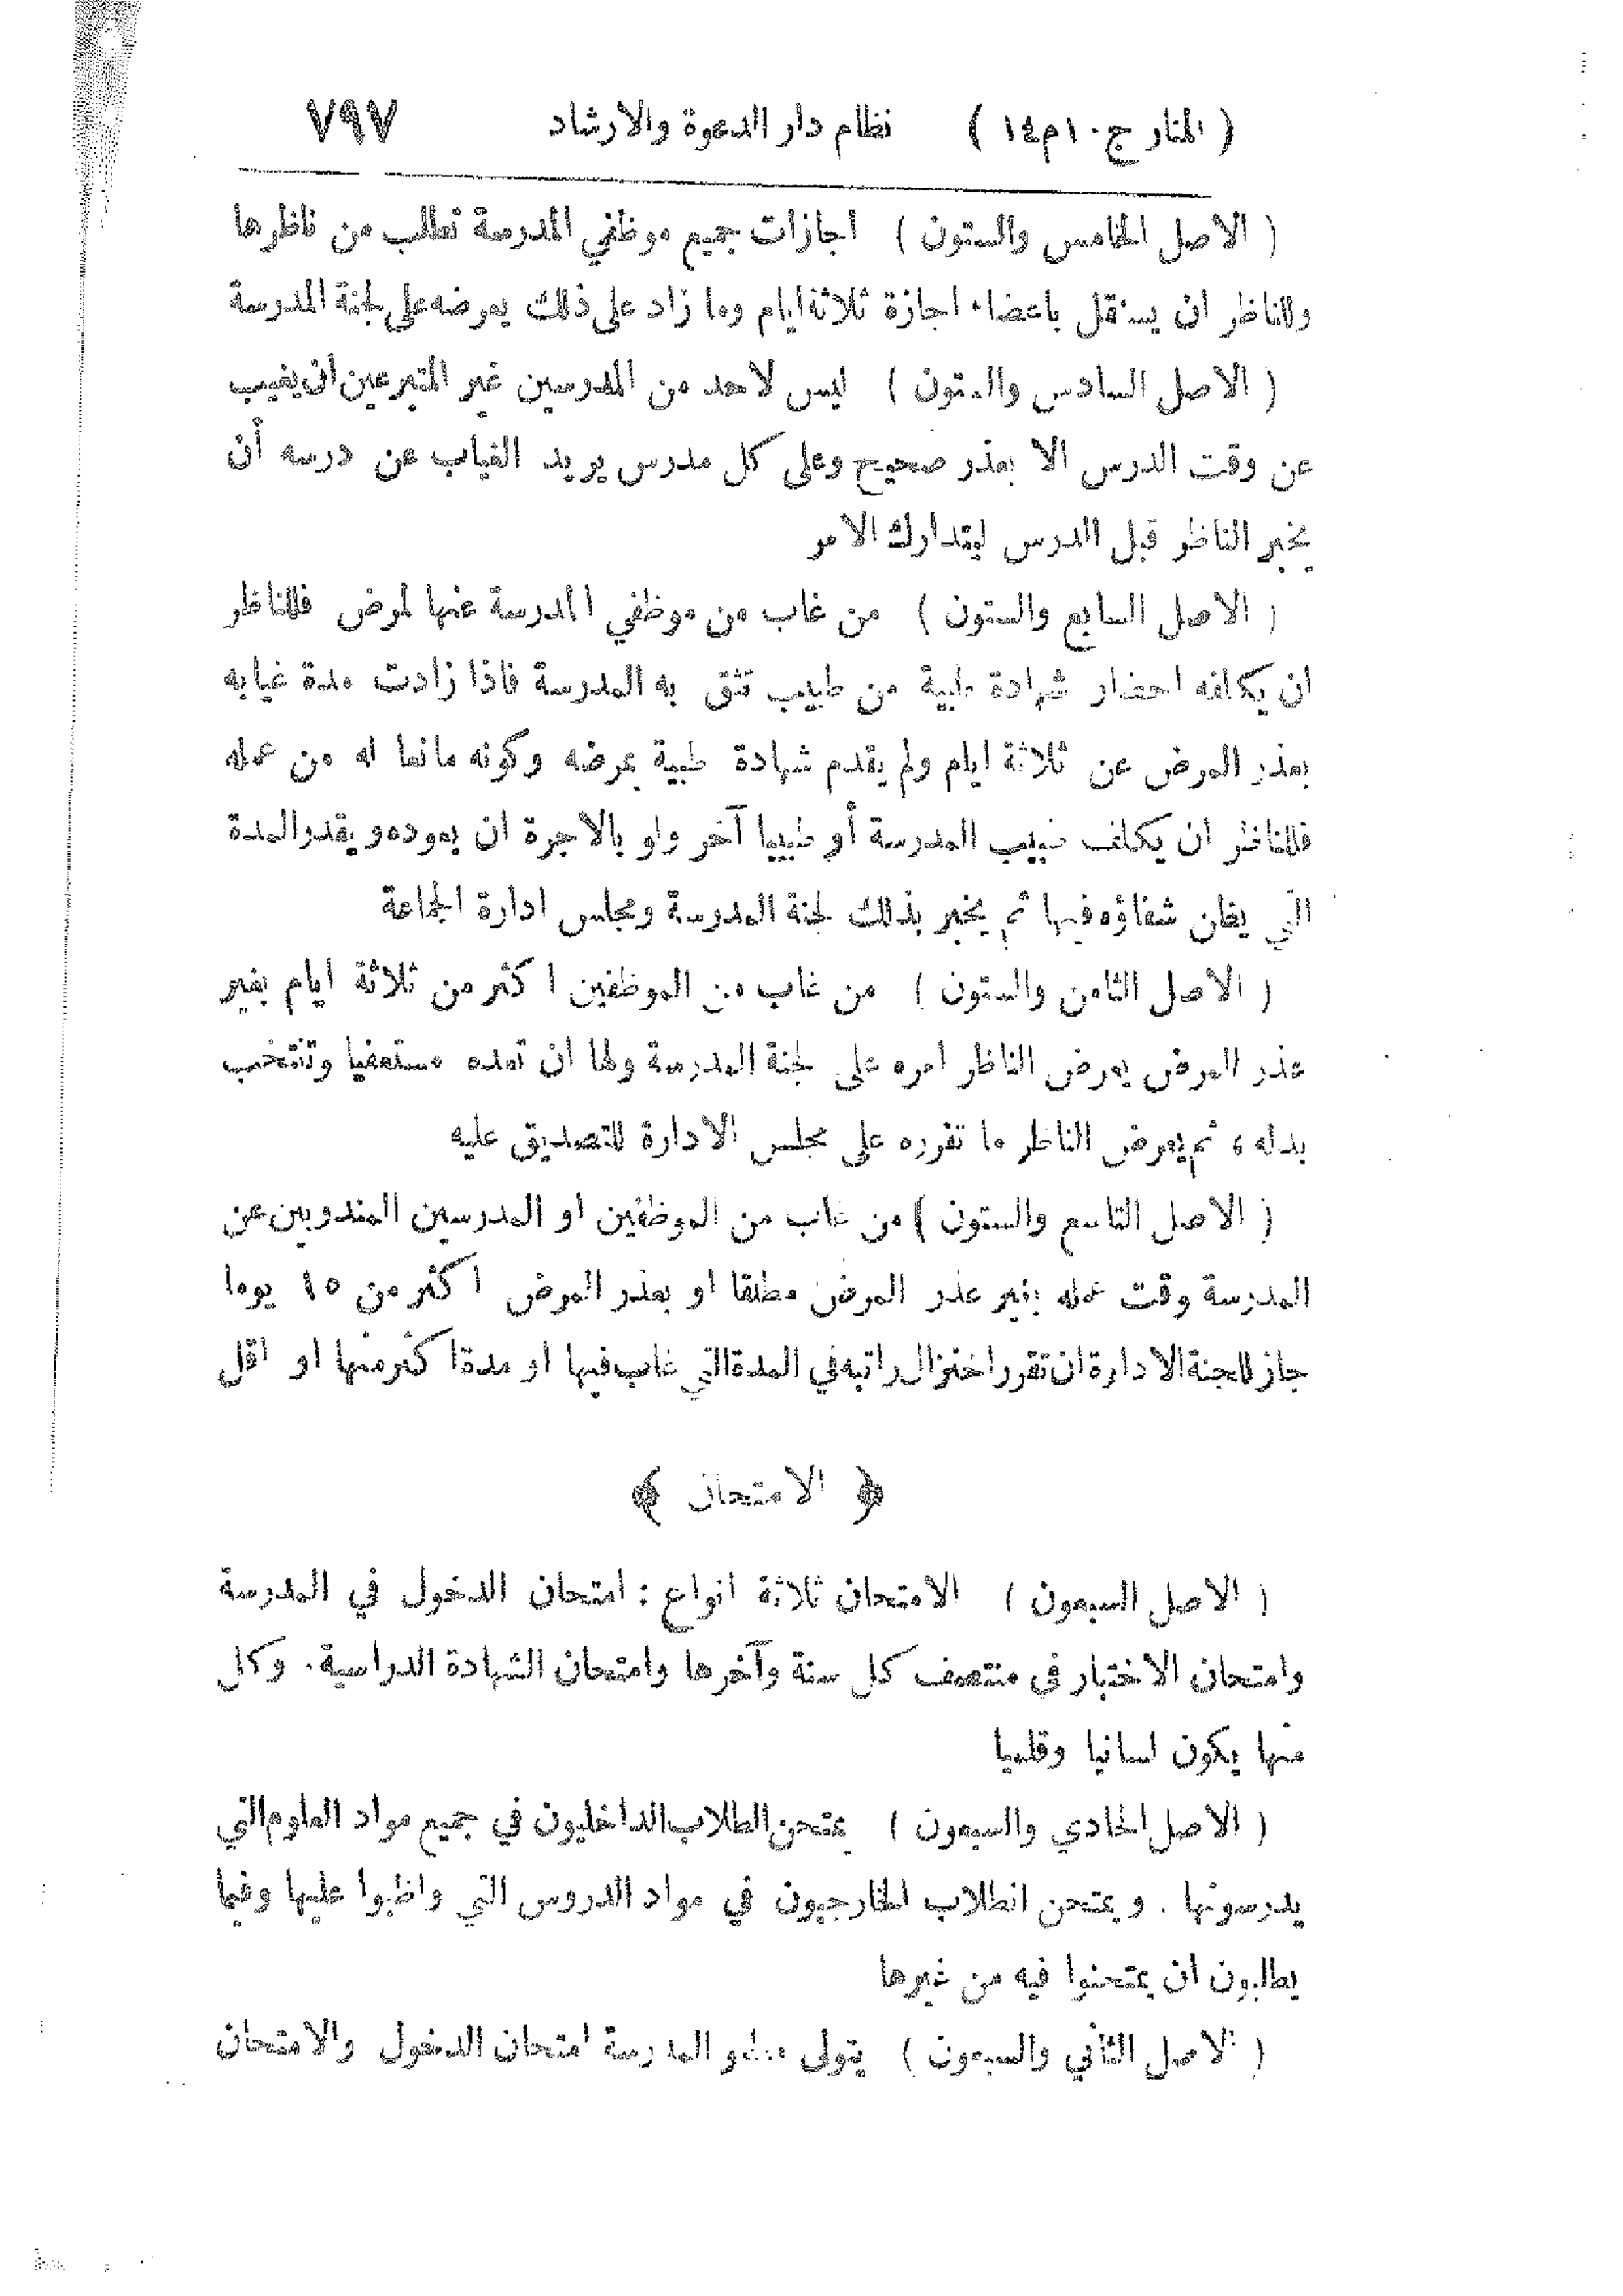 ( المنار ج ١٠ م ١٤ ) نظام دار الدعوة والارشاد ٧٩٧
( الاصل الخامس والستون ) اجازات جميع موظفي المدرسة تطلب من ناظرها
وللناظر ان يستقل باعضاء اجازة ثلاثة ايام وما زاد على ذلك يعرضه على لجنة المدرسة
( الاصل السادس والستون ) ليس لاحد من المدرسين غير المتبرعين ان يغيب
عن وقت الدرس الا بعذر صحيح وعلى كل مدرس يريد الغياب عن درسه أن
يخبر الناظر قبل الدرس ليتدارك الامر
( الاصل السابع والستون ) من غاب من موظفي المدرسة عنها لمرض فللناظر
ان يكلفه احضار شهادة طبية من طبيب تثق به المدرسة فاذا زادت مدة غيابه
بعذر المرض عن ثلاثة ايام ولم يقدم شهادة طبية بمرضه وكونه مانعا له من عمله
فللناظر ان يكلف طبيب المدرسة أو طبيبا آخر ولو بالاجرة ان يعوده ويقدر المدة
التي يظن شفاؤه فيها ثم يخبر بذلك لجنة المدرسة ومجلس ادارة الجماعة
( الاصل الثامن والستون ) من غاب من الموظفين اكثر من ثلاثة ايام بغير
عذر المرض يعرض الناظر امره على لجنة المدرسة ولها ان تعده مستعفيا وتنتخب
بدله ، ثم يعرض الناظر ما تقرره على مجلس الادارة للتصديق عليه
( الاصل التاسع والستون ) من غاب من الموظفين او المدرسين المندوبين عن
المدرسة وقت عمله بغير عذر المرض مطلقا او بعذر المرض اكثر من ١٥ يوما
جاز للجنة الادارة ان تقرر اختزال راتبه في المدة التي غاب فيها او مدة اكثر منها او اقل
﴿ الامتحان ﴾
( الاصل السبعون ) الامتحان ثلاثة انواع : امتحان الدخول في المدرسة
وامتحان الاختبار في منتصف كل سنة وآخرها وامتحان الشهادة الدراسية . وكل
منها يكون لسانيا وقلميا
( الاصل الحادي والسبعون ) يمتحن الطلاب الداخليون في جميع مواد العلوم التي
يدرسونها . ويمتحن الطلاب الخارجيون في مواد الدروس التي واظبوا عليها وفيما
يطلبون ان يمتحنوا فيه من غيرها
( الاصل الثاني والسبعون ) يتولى المدرسة امتحان الدخول والامتحان